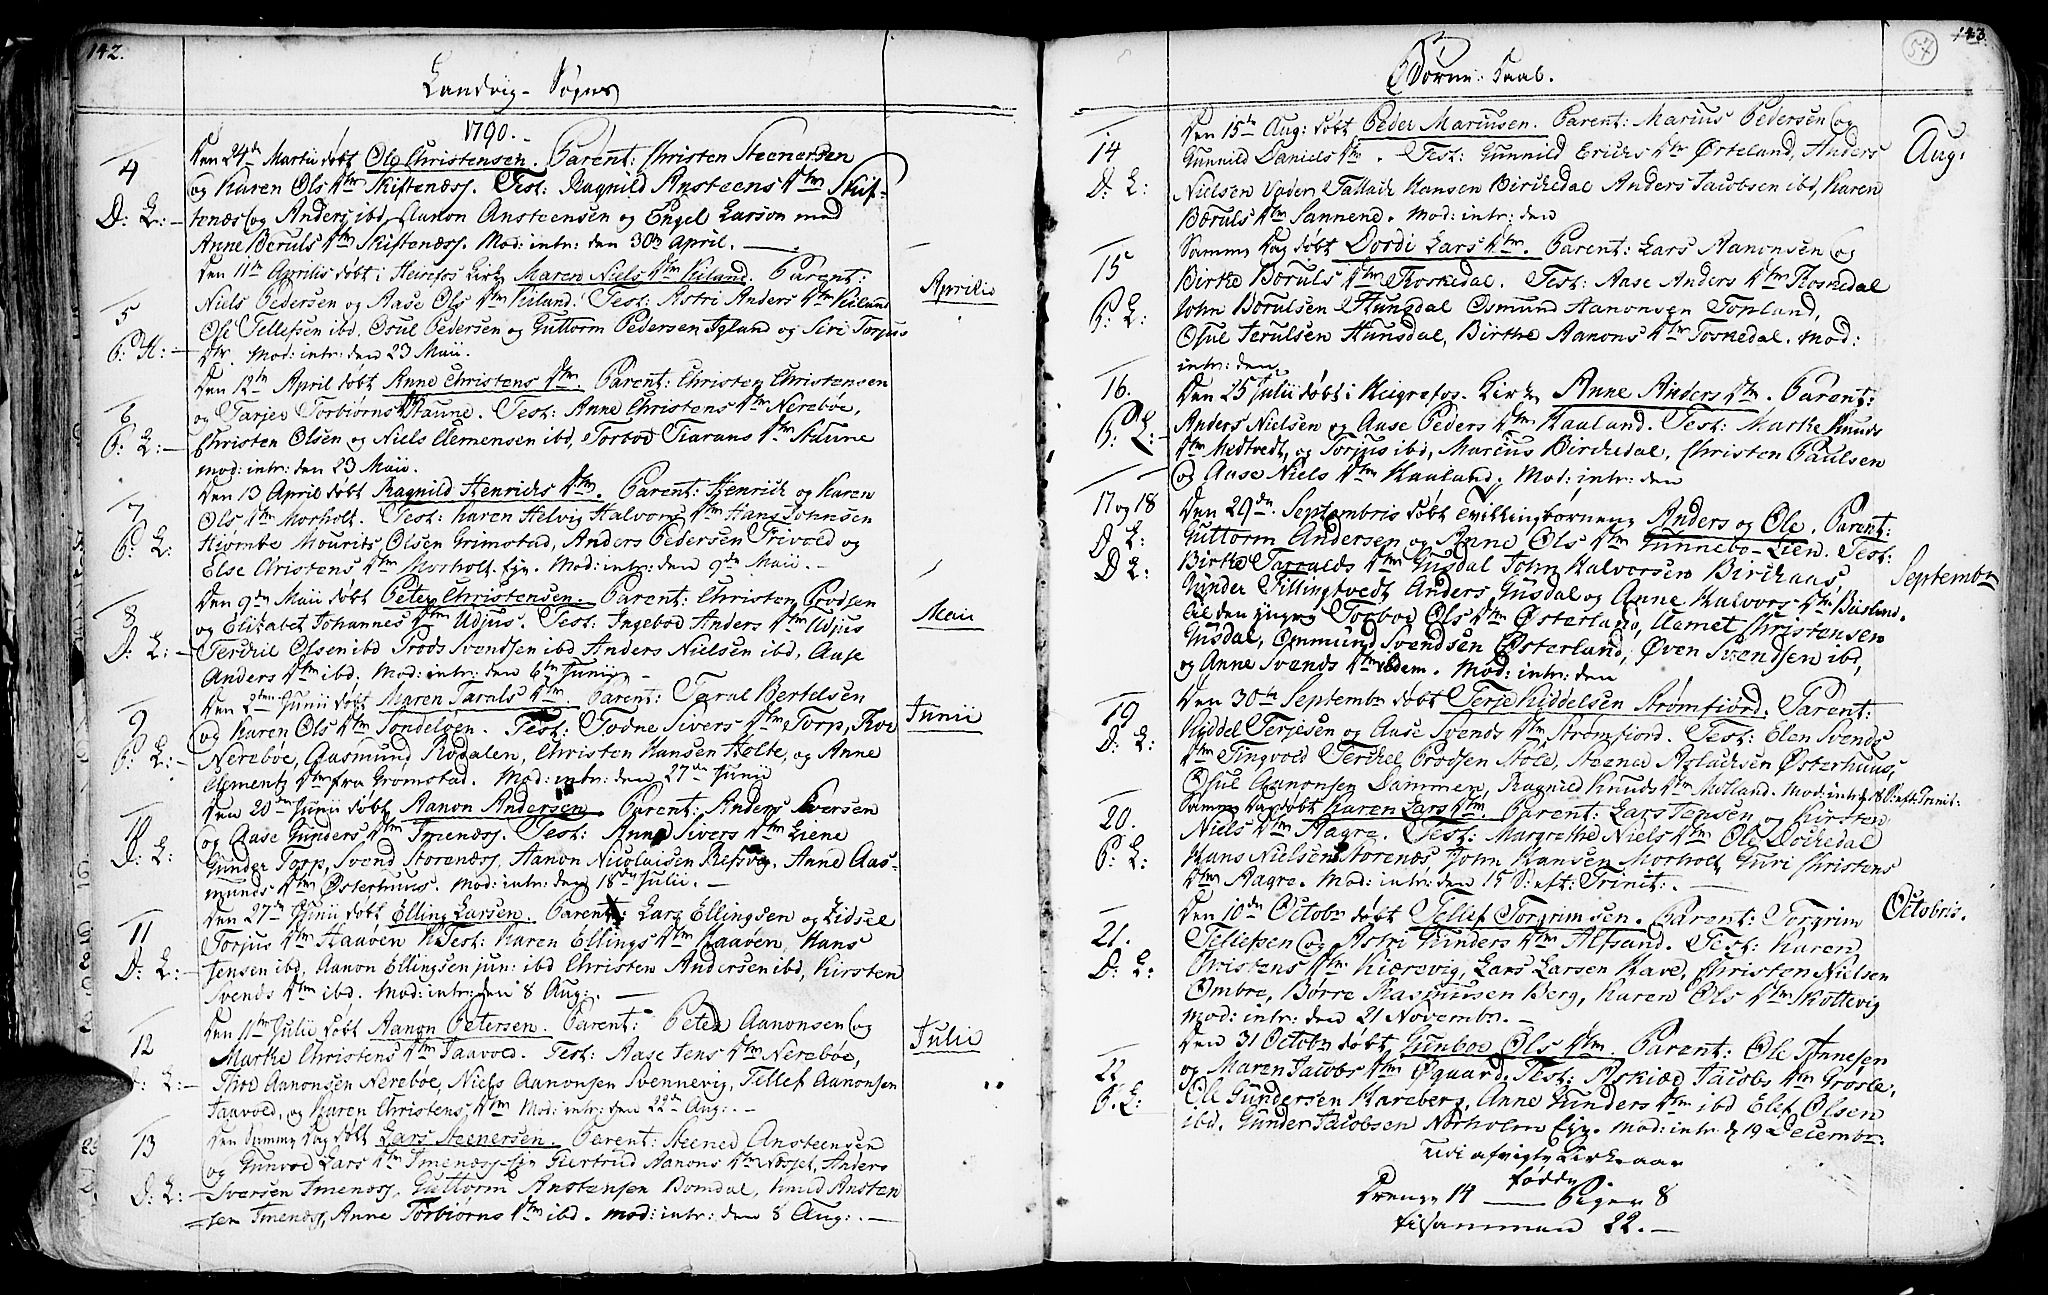 142.
Landvig - Sogns
1790.
4
Den 24de Martii døbt Ole Christensen. Parent: Christen Steenersen
og Karen Ols Dtr Skiftenæss. Test: Ragnild Ansteens Dtr Skif-
D: L: - tenæs og Anders ibd, Aanon Ansteensen og Engel Larson med
Anne Beruls Dtr Skiftenæss. Mod: intr: den 30te April. -
Den 11te Aprilis døbt i Heirefos Kirke Maren Niels Dtr Kiland. Parent:
Aprilis
5
Niels Pedersen og Aase Ols Dtr Kiland. Test: Astri Anders Dtr Kiland
Ose Tellefsen ibd. Osul Pedersen og Guttorm Pedersen Igland og Siri Torjus
P: H: - Dtr. Mod: intr: den 23 Maii.
Den 12te April døbt Anne Christens Dtr. Parent: Christen Christensen
6
og Tarjer Torbiørns Staune. Test: Anne Christens Dtr Nerebøe,
P: L: - Christen Olsen og Niels Clemensen ibd, Torbor Tiarans Dtr
mod: intr: den 23 Maii.
Den 13 April døbt Ragnild Henrichs Dtr. Parent: Henrich og Karen
7
Ols Dtr Morholt. Test: Karen Helvig Halvors Dtr Hans Johnsen
P: L:
Hiombe Mourits Olsen Grimstad, Anders Pedersen Trivold og
Else Christens Dtr Morholt. Eje. Mod: intr: den 9de Maii. -
Den 9de Maii døbt Peter Christensen. Parent: Christen Prodsen
Maii
8
og Elizabet Johannes Dtr Udjus. Test: Ingebor Anders Dtr Udjus
D: L: - Terchil Olsen ibd Prods Svendsen ibd Anders Nielsen ibd, Aase
Anders Dtr ibd. Mod: intr: den 6te Junii. -
Den 2den Junii døbt Maren Tarals Dtr. Parent: Taral Bertelsen
Junii
9
og Karen Ols Dtr Tondelgen. Test: Todne Sivers Dtr Torp, Thor
P: L: - Nerebøe, Aasmund Rødalen, Christen Hansen Holte, og Anne
Clements Dtr fra Gromstad. Mod: intr: den 27de Junii
Den 20de Junii døbt Aanon Andersen. Parent: Anders Iversen
10
og Aase Gunders Dtr Imenæss. Test: Anne Sivers Dtr Liene
D: L:
Gunder Torp, Svend Storenæss, Aanon Nicolaisen Refsvig, Anne Aas-
munds Dtr Østerhuus. Mod: intr: den 18de Julii. -
Den 27de Junii døbt Elling Larsen. Parent: Lars Ellingsen og Lidsel
11
Torjus Dtr Haaøen. Test: Karen Ellings Dtr Haaøen, Hans
D: L: - Jensen ibd, Aanon Ellingsen jun: ibd Christen Andersen ibd, Kirsten
Svends Dtr ibd. Mod: intr: den 8 Aug:. -
Den 11te Julii døbt Aanon Petersen. Parent: Peter Aanonsen og
Julii
12
Marthe Christens Dtr Taavold. Test: Aase Jens Dtr Nerebøe,
D: L: - Thor Aanonsen Nerebøe, Niels Aanonsen Svennevig, Tellef Aanonsen
Taavold, og Karen Christens Dtr Mod: intr: den 22de Aug:. -
Den Samme Dag døbt Lars Steenersen. Parent: Steener Ansteensen
13
og Gunvor Lars Dtr Imenæss. Giertrud Aanons Dtr Næsset, Anders
D: L: - Iversen Imenæss, Guttorm Anstensen Bomdal, Knud Ansten
sen Imenæss, Anne Torbiørns Dtr ibd. Mod: intr: den 8 Aug:. -
57
143.
Børne: Daab.
14
Den 15de Aug: døbt Peder Mariusen. Parent: Marius Pedersen og
Aug:
Gunnild Daniels Dtr. Test: Gunnild Erichs DtrØrteland, Anders
D: L:
Nielsen Tallach Hansen Birchedal Anders Jacobsen ibd, Karen
Bæruls Dtr Sannene. Mod: intr: den
15
Samme Dag døbt Dordi Lars Dtr. Parent: Lars Aanonsen og
Birthe Bæruls Dtr Thoskedal. Test: Aase Anders Dtr Thoskedal
P: L:
John Borulsen Hungdal Osmund Aanonsen Topland,
Osul Jerulsen Hunsdal, Birthe Aanons Dtr Toskedal. Mod:
intr: den
16.
Den 25 Julii døbt i Heigrefos. Kirke Anne Anders Dtr. Parent:
P: L: -
Anders Nielsen og Aase Peders Dtr Haaland. Test: Marthe Knuds
Dtr Medtvedt, og Torjus ibd, Marcus Birchedal, Christen Paulsen
og Aase Niels Dtr Haaland. Mod: intr: den
17 og 18
Den 29de Septembris døbt Tvillingbørnene Anders og Ole. Parent:
D: L:
Guttorm Andersen og Anne Ols Dtr Gunnebo-Lien. Test:
D: L:
Birthe Tarralds Dtr Gusdal John Halvorsen Birchaas
Septembr
Gunder Tillingtvedt Anders Gusdal og Anne Halvors Dtr Beisland.
til den yngre Torbor Ols Dtr Østerland, Aamet Christensen
Gusdal, Omund Svendsen Østerland, Øven Svendsen ibd,
og Anne Svends Dtr ibdem. Mod: intr: den
19
Den 30te Septembr døbt Terje Kiddelsen Strømfiord. Parent:
D: L:
Kiddel Terjesen og Aase Svends Dtr Strømfiord. Test: Elen Svends
Dtr Tingvold Terchel Prodsen Stole, Steener Aslachsen Østerhuus,
Osul Aanonsen Dammen, Ragnild Knuds Dtr Molland. Mod: intr: d 18 D: eft: Trinit:
20.
Samme Dag døbt Karen Lars Dtr. Parent: Lars Jensen og Kirsten
P: L:
Niels Dtr Aagre. Test: Margrethe Niels Dtr Ole Dochedal
Hans Nielsen Storenæs John Hansen Morholt Guri Christens
Dtr Aagre. Mod: intr: den 15 S: eft: Trinit: -
21.
Den 10de Octobr døbt Tellef Torgrimsen. Parent: Torgrim
Octobris.
Tellefsen og Astri Gunders Dtr Alfsand. Test: Karen
D: L:
Christens Dtr Kiærevig, Lars Larsen Have, Christen Nielsen
Ombre, Børre Rasmusen Berg, Karen Ols Dtr Skottevig
Mod: intr: den 21 Novembr. -
22
Den 31 Octobr døbt Gunbor Ols Dtr. Parent: Ole Tønnesen
og Maren Jacobs Dtr Øgaard. Test: Askiær Jacobs Dtr Grosle,
P: L:
Ole Gundersen Hareberg, Anne Gunders Dtr ibd Elef Olsen
ibd. Gunder Jacobsen Norholm Eje. Mod: intr d 19 Decembr.
Udi afvigte Kirke aar
fødde.
Drenge 14 — Piger 8
tilsammen 22. -